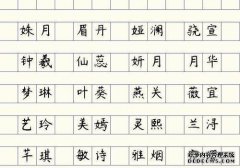 姝月 眉丹 娅澜 骁宣
钟羲 仙蕊 妍月 月华
梦琳 叶葵 燕关 薇宜
艺玲 美嫣 灵熙 兰浔
芊琪 敏诗 雅烟